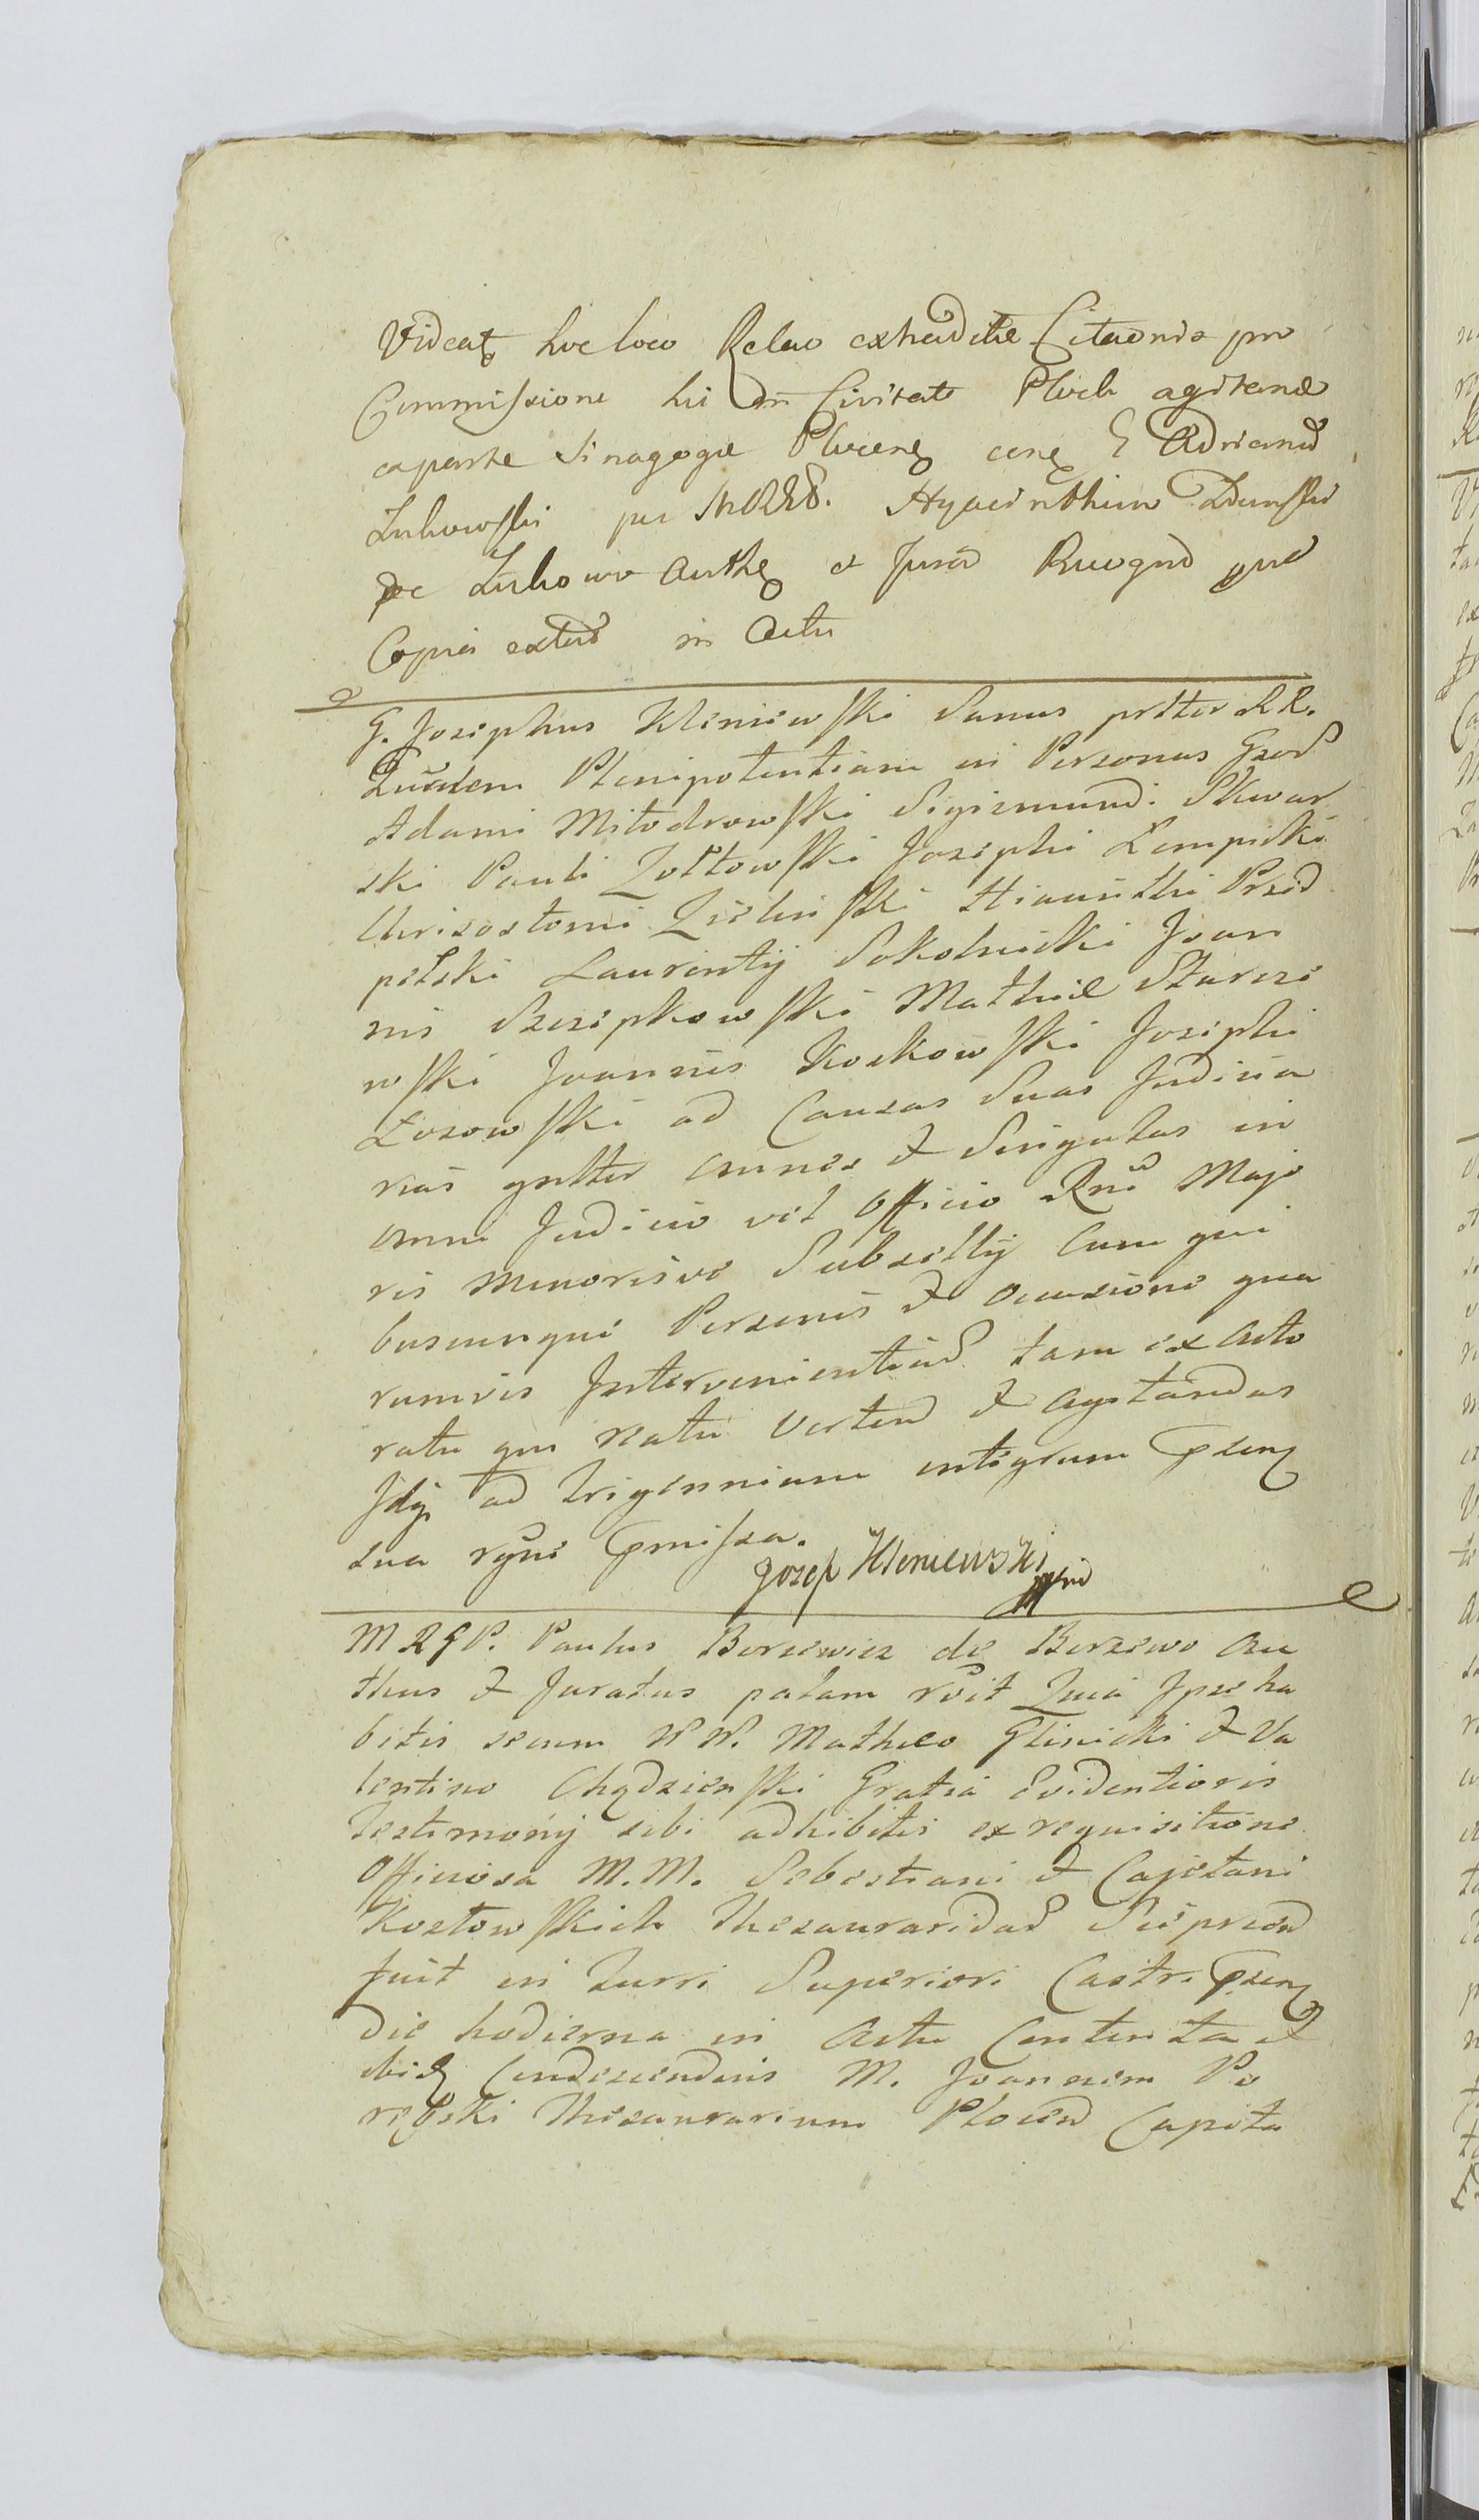 Videat hoc loco Relao extradite Citaonis pro
Commissione hic in Civitate Plock agitand
ex parte Sinagoge Plocens cens G Adriand
Lukowski per Hyacinthum Dunski
de Lukowo Authen et Jurad Recognd prd
Copia extrad in Actu
G. Josephus Kleniewski Sanus prttr RR.
Quidem Plenipotentiam in Personas Gsord
Adami Miłodrowski Sigismundi Skwar
ski Pauli Zołtowski Josephi Lempicki
Chrisostomi Zieliński Hiacinthi Przed
pełski Laurentij Sokolnicki Joan
nis Szczepkowski Mathiæ Starczé
wski Joannis Koskowski Josephi
Łosowski ad Causas Suas Judicia
rias gnltter omnes & Singulas in
omni Judicio vel Officio Rni Majo
ris Minorisve Subsellij Cum qui
buscunque Personis & Occasione qua
rumvis Intervenientiud tam ex Acto
ratu qm Reatu Verten & Agitandas
Idq ad Trigennium integrum psens
sua rgni pmissa.
Jozef Kleniewski mpd
M R G P. Paulus Borzewicz de Borzewo Au
thus & Juratus palam rvit Quia Ipse ha
bitis secum W W. Matheo Glinicki & Va
lentino Chądzieński Gratia Evidentioris
Testimonij sibi adhibitis ex requisitione
Officiosa M. M. Sebestiani & Cajetani
Kozłowskich Thesauraridad Sierpcend
fuit in Turri Superiori Castri psens
die hodierna in Actu Contenta &
ibid Condescendenis M. Joannem Po
rębski Thesaurarium Plocend Capita